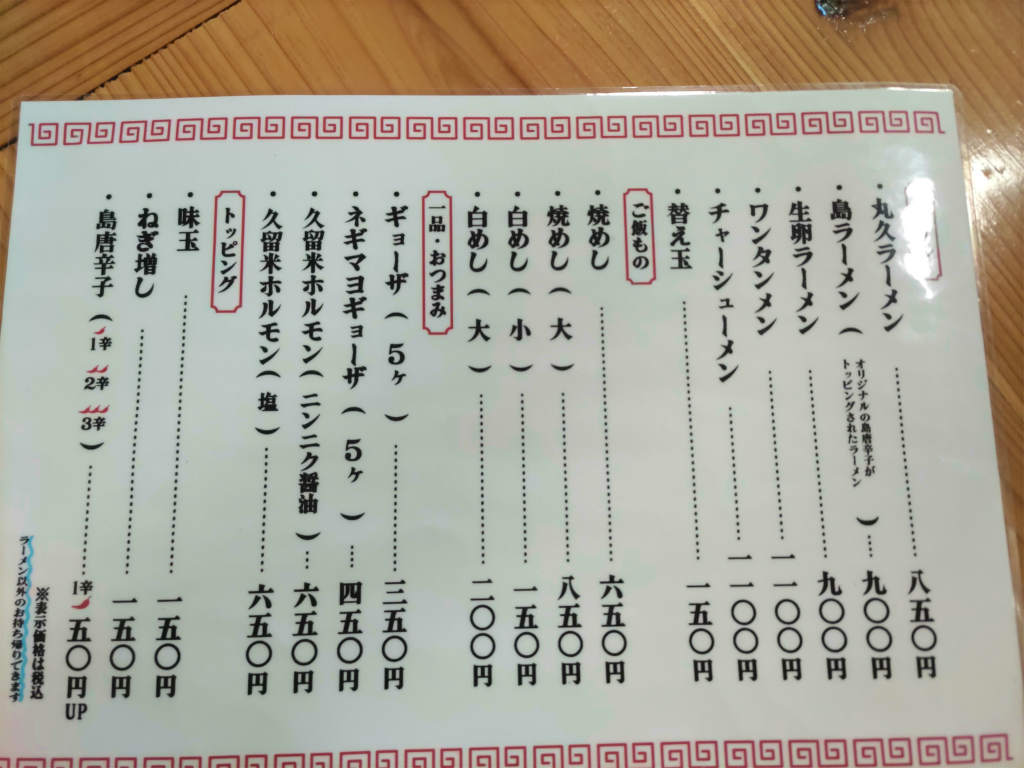 ・丸久ラーメン 八五〇円
・島ラーメン（オリジナルの島唐辛子がトッピングされたラーメン） 九〇〇円
・生卵ラーメン 九〇〇円
・ワンタンメン 一一〇〇円
・チャーシューメン 一一〇〇円
・替え玉 一五〇円
ご飯もの
・焼めし 六五〇円
・焼めし（大） 八五〇円
・白めし（小） 一五〇円
・白めし（大） 二〇〇円
一品・おつまみ
・ギョーザ（5ヶ） 三五〇円
・ネギマヨギョーザ（5ヶ） 四五〇円
・久留米ホルモン（ニンニク醤油） 六五〇円
・久留米ホルモン（塩） 六五〇円
トッピング
・味玉 一五〇円
・ねぎ増し 一五〇円
・島唐辛子（1辛 2辛 3辛） 1辛 五〇円UP
※表示価格は税込
ラーメン以外のお持ち帰りできます